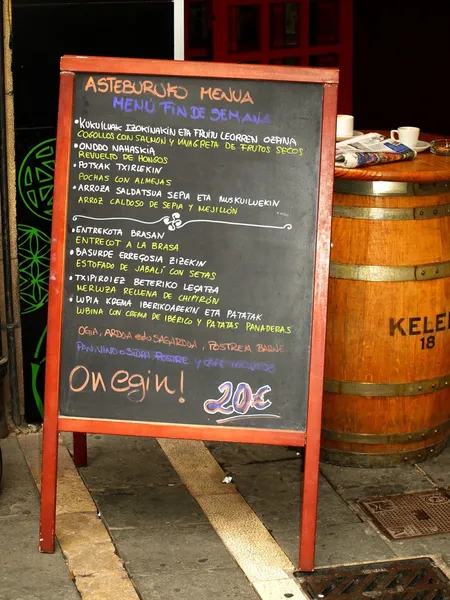 ASTEBURUKO MENUA
MENÚ FIN DE SEMANA
• KUKULUAK IZOKINAKIN ETA FRUITU LEORREN OZPINA
COGOLLOS CON SALMÓN Y VINAGRETA DE FRUTOS SECOS
• ONDDO NAHASKIA
REVUELTO DE HONGOS
• POTXAK TXIRLEKIN
POCHAS CON ALMEJAS
• ARROZA SALDATSUA SEPIA ETA MUSKUILUEKIN
ARROZ CALDOSO DE SEPIA Y MEJILLÓN
• ENTREKOTA BRASAN
ENTRECOT A LA BRASA
• BASURDE ERREGOSIA ZIZEKIN
ESTOFADO DE JABALÍ CON SETAS
• TXIPIROIEZ BETERIKO LEGATZA
MERLUZA RELLENA DE CHIPIRÓN
• LUPIA KREMA IBERIKOAREKIN ETA PATATAK
LUBINA CON CREMA DE IBÉRICO Y PATATAS PANADERAS
OGIA, ARDOA edo SAGARDOA, POSTREA BARNE.
PAN, VINO o SIDRA POSTRE Y CAFÉ INCLUIDO.
On egin!
20€
KELER
18